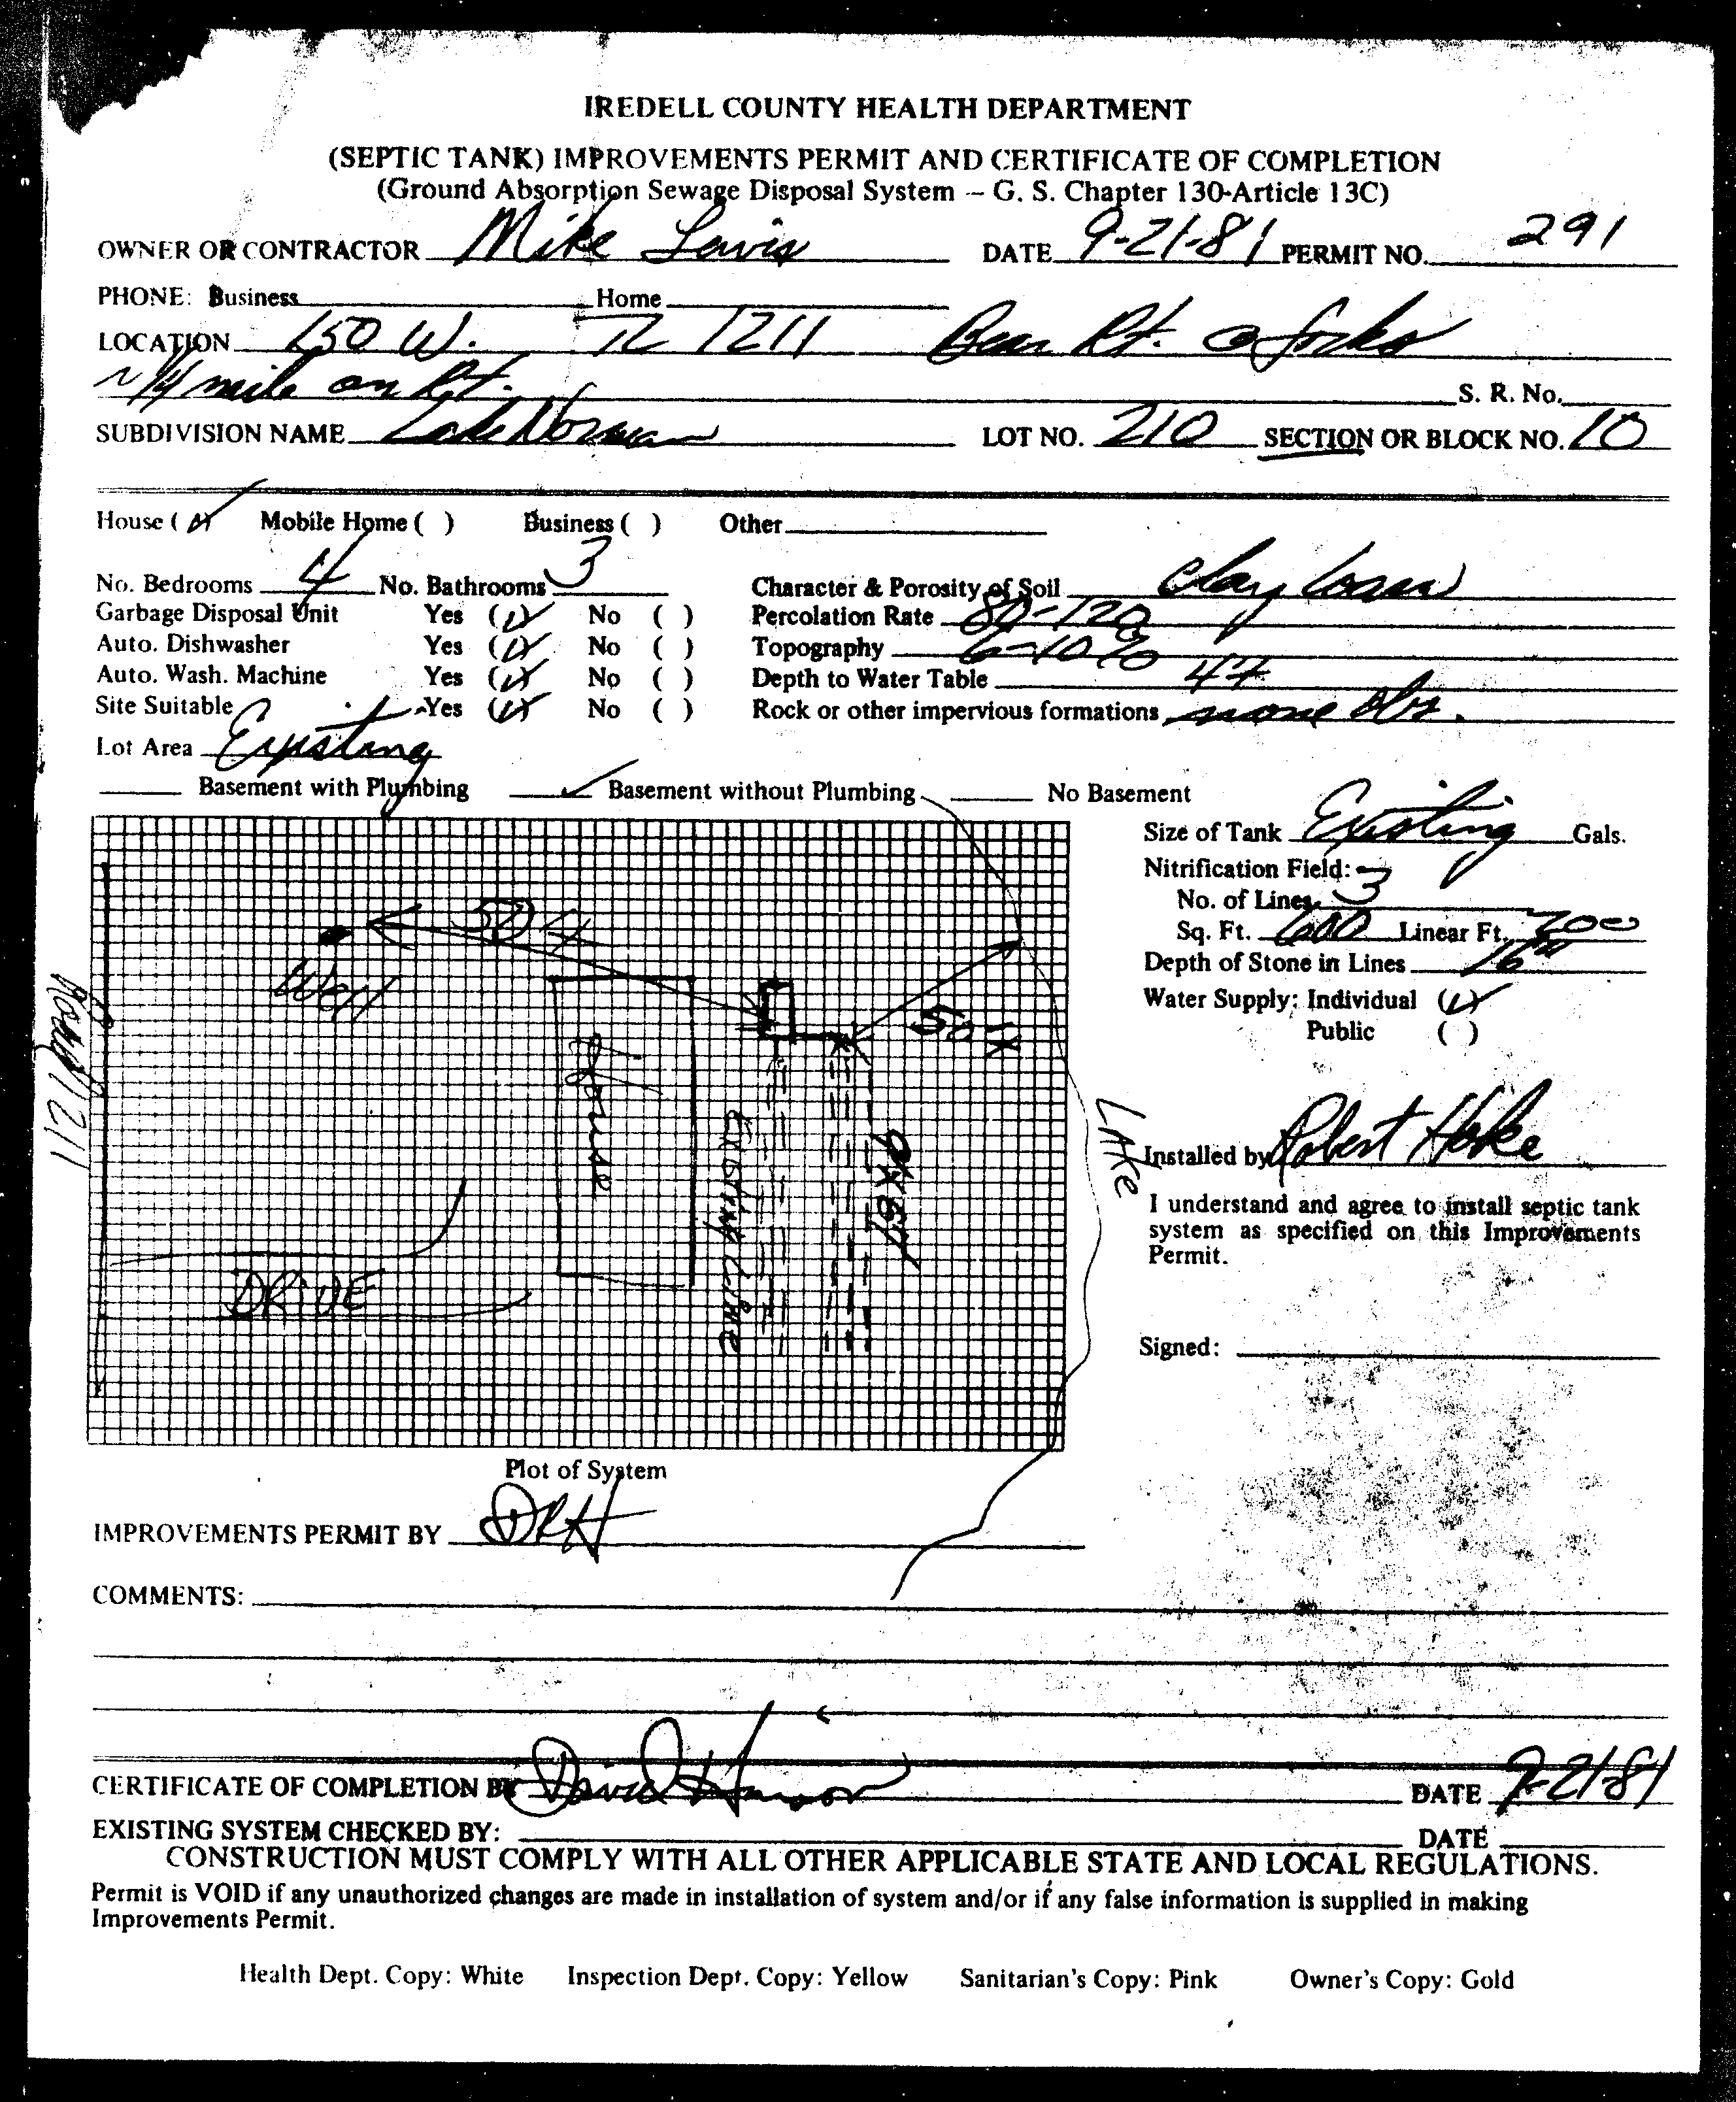 IREDELL COUNTY HEALTH DEPARTMENT
(SEPTIC TANK) IMPROVEMENTS PERMIT AND CERTIFICATE OF COMPLETION
(Ground Absorption Sewage Disposal System -- G. S. Chapter 130-Article 13C)
OWNER OR CONTRACTOR Mike Lewis DATE 9-21-81 PERMIT NO. 291
PHONE: Business Home
LOCATION 150 W. 1211 Bear Rt. @ forks
~ 1/4 mile on Rt. S. R. No.
SUBDIVISION NAME Lake Norman LOT NO. 210 SECTION OR BLOCK NO. 10
House (✓) Mobile Home ( ) Business ( ) Other
No. Bedrooms 4 No. Bathrooms 3 Character & Porosity of Soil clay loam
Garbage Disposal Unit Yes (✓) No ( ) Percolation Rate 80-120
Auto. Dishwasher Yes (✓) No ( ) Topography 6-10%
Auto. Wash. Machine Yes (✓) No ( ) Depth to Water Table 4+
Site Suitable Yes (✓) No ( ) Rock or other impervious formations none obs.
Lot Area Existing
Basement with Plumbing ✓ Basement without Plumbing No Basement
Size of Tank Existing Gals.
Nitrification Field:
No. of Lines 3
Sq. Ft. 600 Linear Ft. 200
Depth of Stone in Lines 16"
Water Supply: Individual (✓)
Public ( )
50 +
Well
House
50 +
Existing Line
3x67
LAKE
Road 1211
DRIVE
Installed by Robert Hoke
I understand and agree to install septic tank
system as specified on this Improvements
Permit.
Signed:
Plot of System
IMPROVEMENTS PERMIT BY DRH
COMMENTS:
CERTIFICATE OF COMPLETION BY David DATE 9-21-81
EXISTING SYSTEM CHECKED BY: DATE
CONSTRUCTION MUST COMPLY WITH ALL OTHER APPLICABLE STATE AND LOCAL REGULATIONS.
Permit is VOID if any unauthorized changes are made in installation of system and/or if any false information is supplied in making
Improvements Permit.
Health Dept. Copy: White Inspection Dept. Copy: Yellow Sanitarian's Copy: Pink Owner's Copy: Gold